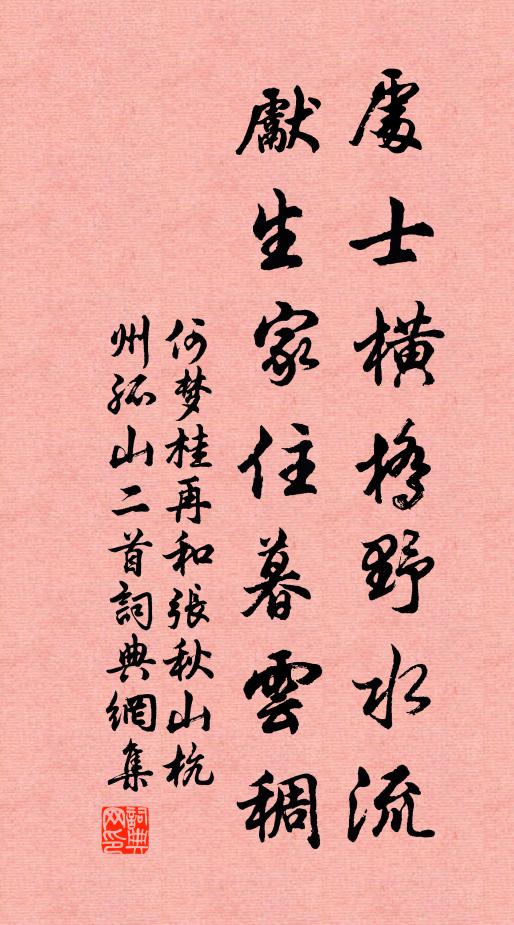 處士橫橋野水流
獻生家住暮雲稠
何梦桂再和張秋山杭
州孤山二首詞典網集
詞典
网印